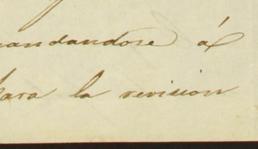 mandandose á
para la revision